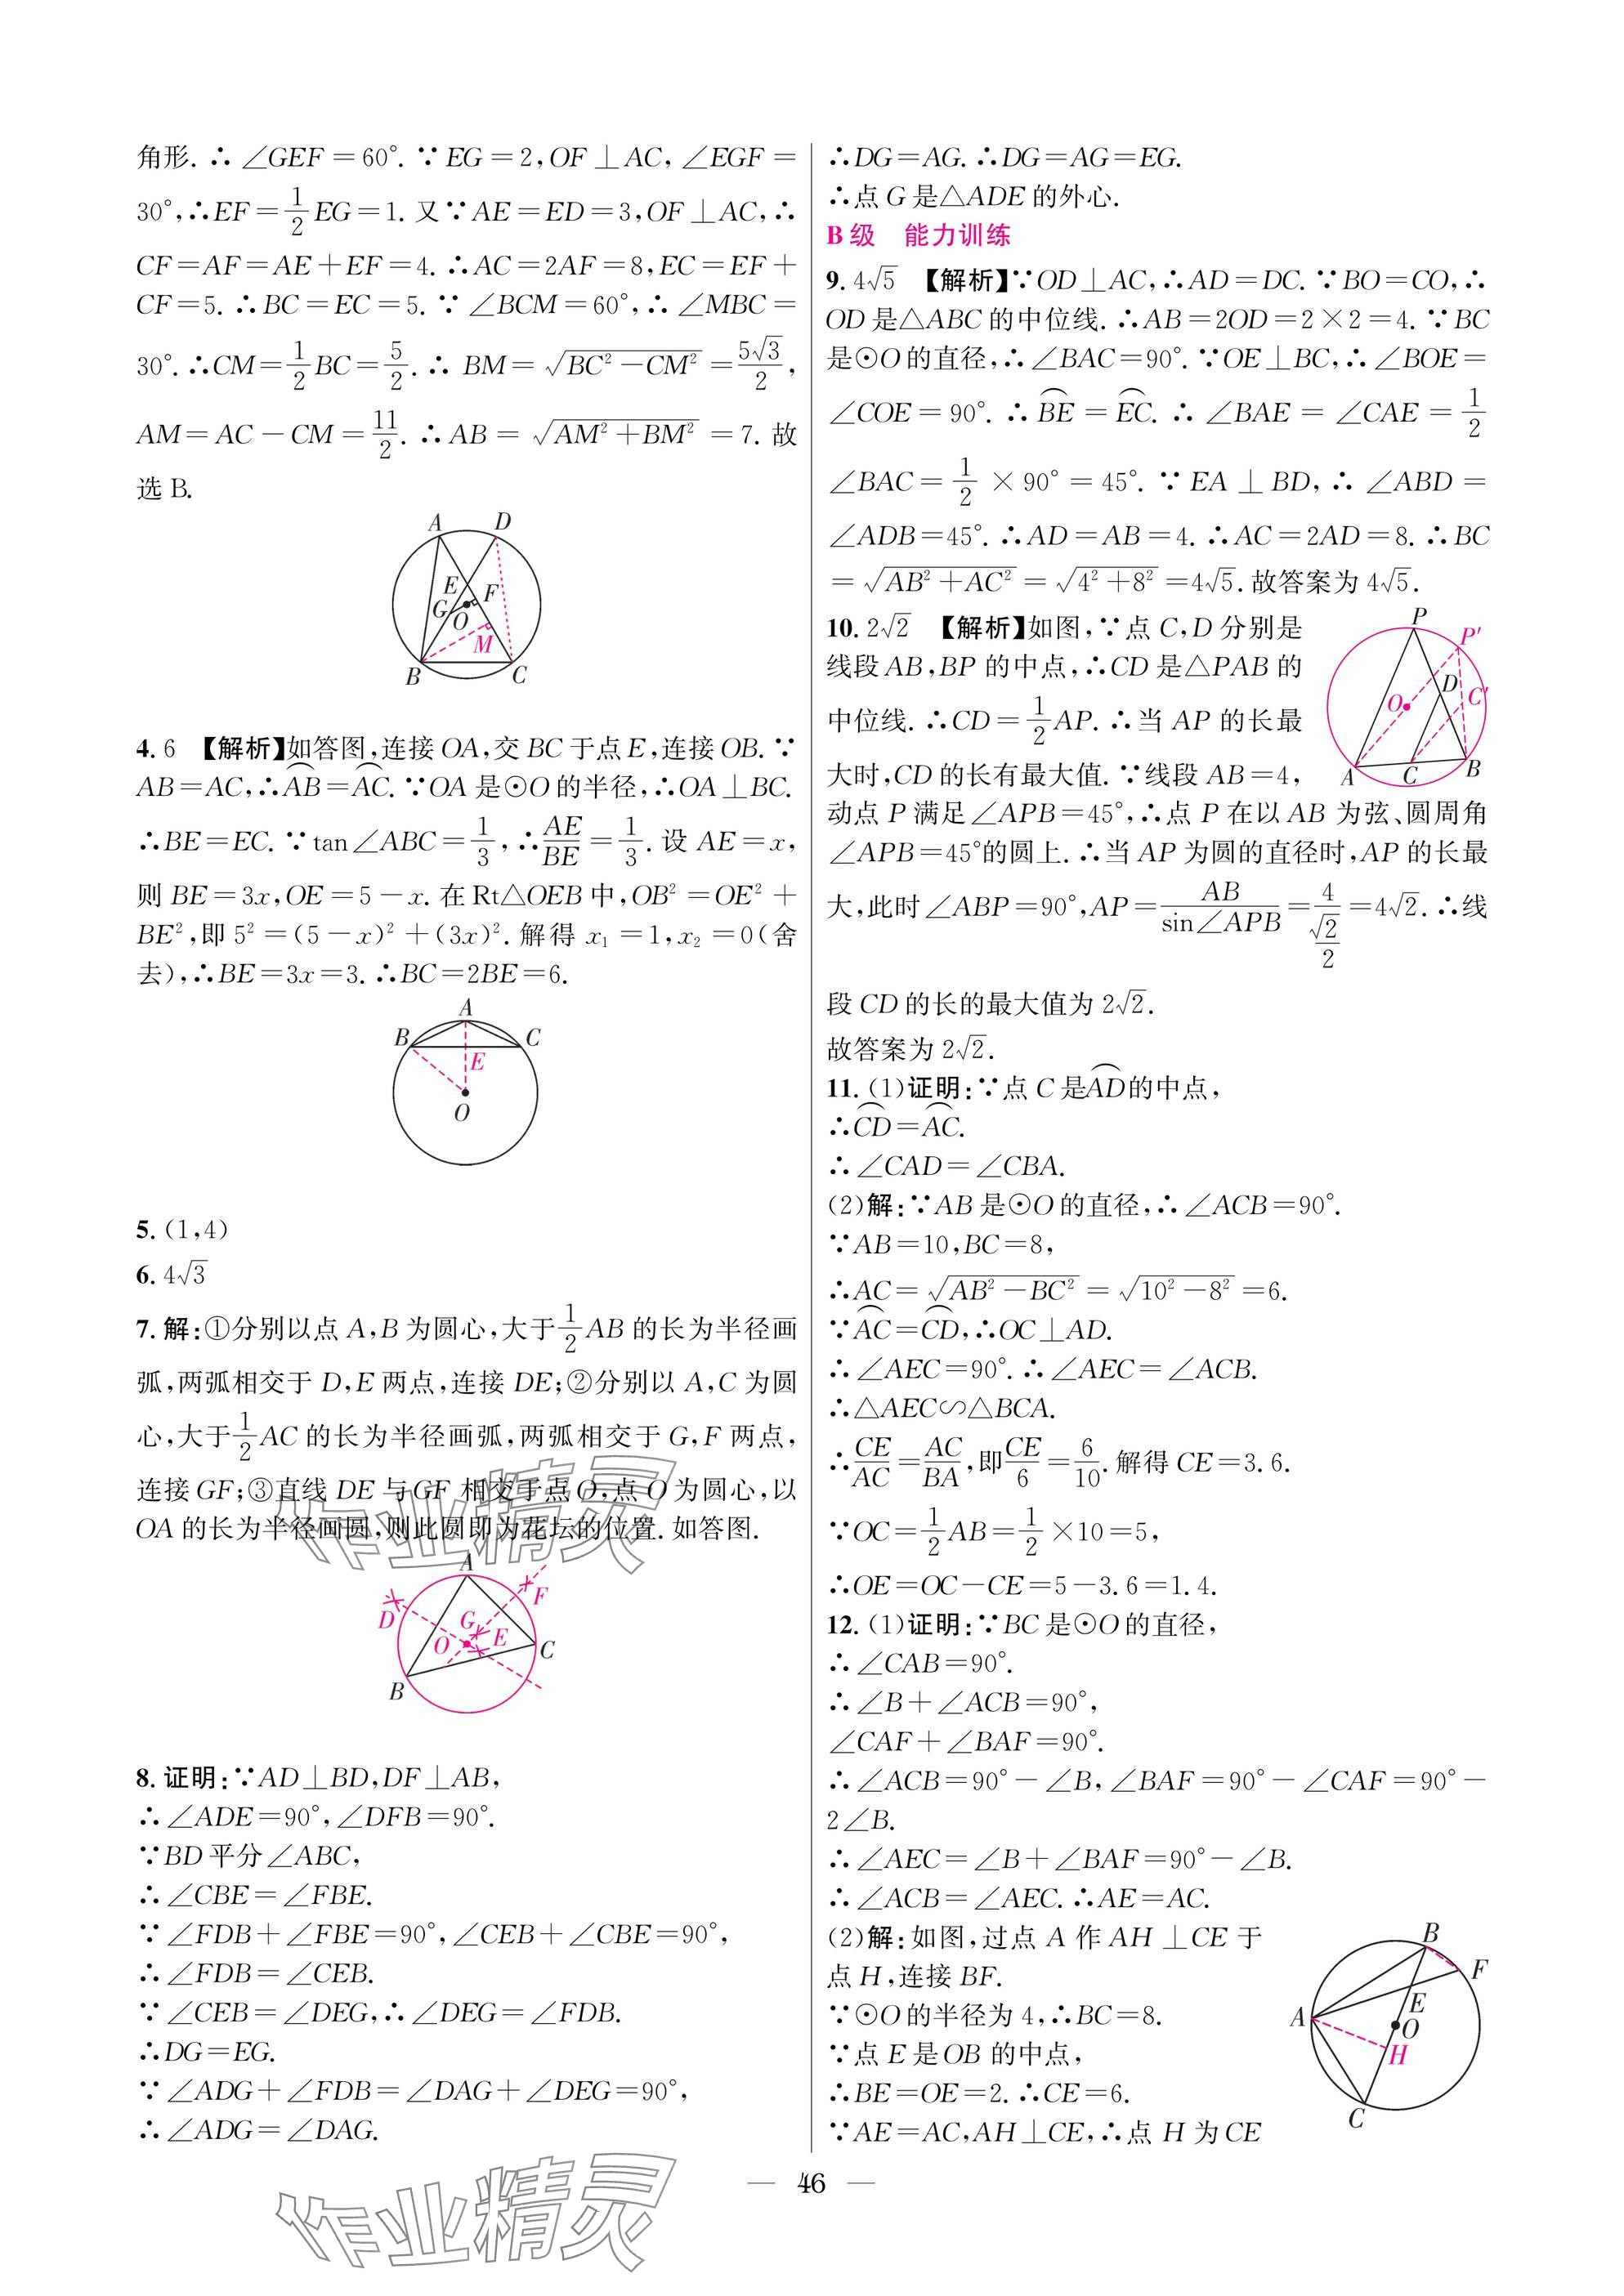 角形. ∴ ∠GEF = 60°. ∵ EG = 2, OF ⊥ AC, ∠EGF =
30°, ∴EF = 1/2 EG = 1. 又∵AE = ED = 3, OF ⊥ AC, ∴
CF = AF = AE + EF = 4. ∴AC = 2AF = 8, EC = EF +
CF = 5. ∴BC = EC = 5. ∵ ∠BCM = 60°, ∴ ∠MBC =
30°. ∴CM = 1/2 BC = 5/2. ∴ BM = √(BC²−CM²) = 5√3/2,
AM = AC − CM = 11/2. ∴AB = √(AM²+BM²) = 7. 故
选 B.
A D E F G O M B C
4. 6 【解析】如答图,连接 OA,交 BC 于点 E,连接 OB. ∵
AB=AC,∴⌒AB=⌒AC. ∵OA 是⊙O 的半径,∴OA⊥BC.
∴BE=EC. ∵tan∠ABC=1/3,∴AE/BE=1/3. 设 AE=x,
则 BE=3x,OE=5−x. 在 Rt△OEB 中,OB²=OE²+
BE²,即 5²=(5−x)²+(3x)². 解得 x₁=1,x₂=0(舍
去),∴BE=3x=3. ∴BC=2BE=6.
A B C E O
5. (1,4)
6. 4√3
7. 解:①分别以点 A,B 为圆心,大于1/2 AB 的长为半径画
弧,两弧相交于 D,E 两点,连接 DE;②分别以 A,C 为圆
心,大于1/2 AC 的长为半径画弧,两弧相交于 G,F 两点,
连接 GF;③直线 DE 与 GF 相交于点 O,点 O 为圆心,以
OA 的长为半径画圆,则此圆即为花坛的位置. 如答图.
作业精灵
A F D G O E C B
8. 证明:∵AD⊥BD,DF⊥AB,
∴∠ADE=90°,∠DFB=90°.
∵BD 平分∠ABC,
∴∠CBE=∠FBE.
∵∠FDB+∠FBE=90°,∠CEB+∠CBE=90°,
∴∠FDB=∠CEB.
∵∠CEB=∠DEG,∴∠DEG=∠FDB.
∴DG=EG.
∵∠ADG+∠FDB=∠DAG+∠DEG=90°,
∴∠ADG=∠DAG.
∴DG=AG. ∴DG=AG=EG.
∴点 G 是△ADE 的外心.
B 级 能力训练
9. 4√5 【解析】∵OD⊥AC,∴AD=DC. ∵BO=CO,∴
OD 是△ABC 的中位线. ∴AB=2OD=2×2=4. ∵BC
是⊙O 的直径,∴∠BAC=90°. ∵OE⊥BC,∴∠BOE=
∠COE=90°. ∴⌒BE=⌒EC. ∴∠BAE=∠CAE=1/2
∠BAC=1/2×90°=45°. ∵EA⊥BD,∴∠ABD=
∠ADB=45°. ∴AD=AB=4. ∴AC=2AD=8. ∴BC
=√(AB²+AC²)=√(4²+8²)=4√5. 故答案为 4√5.
10. 2√2 【解析】如图,∵点 C,D 分别是
线段 AB,BP 的中点,∴CD 是△PAB 的
中位线. ∴CD=1/2 AP. ∴当 AP 的长最
大时,CD 的长有最大值. ∵线段 AB=4,
P P′ D C′ O A C B
动点 P 满足∠APB=45°,∴点 P 在以 AB 为弦、圆周角
∠APB=45°的圆上. ∴当 AP 为圆的直径时,AP 的长最
大,此时∠ABP=90°,AP=AB/sin∠APB=4/(√2/2)=4√2. ∴线
段 CD 的长的最大值为 2√2.
故答案为 2√2.
11. (1)证明:∵点 C 是⌒AD的中点,
∴⌒CD=⌒AC.
∴∠CAD=∠CBA.
(2)解:∵AB 是⊙O 的直径,∴∠ACB=90°.
∵AB=10,BC=8,
∴AC=√(AB²−BC²)=√(10²−8²)=6.
∵⌒AC=⌒CD,∴OC⊥AD.
∴∠AEC=90°. ∴∠AEC=∠ACB.
∴△AEC∽△BCA.
∴CE/AC=AC/BA,即CE/6=6/10. 解得 CE=3.6.
∵OC=1/2 AB=1/2×10=5,
∴OE=OC−CE=5−3.6=1.4.
12. (1)证明:∵BC 是⊙O 的直径,
∴∠CAB=90°.
∴∠B+∠ACB=90°,
∠CAF+∠BAF=90°.
∴∠ACB=90°−∠B,∠BAF=90°−∠CAF=90°−
2∠B.
∴∠AEC=∠B+∠BAF=90°−∠B.
∴∠ACB=∠AEC. ∴AE=AC.
(2)解:如图,过点 A 作 AH⊥CE 于
点 H,连接 BF.
∵⊙O 的半径为 4,∴BC=8.
∵点 E 是 OB 的中点,
∴BE=OE=2. ∴CE=6.
∵AE=AC,AH⊥CE,∴点 H 为 CE
B F E A O H C
— 46 —
作业精灵